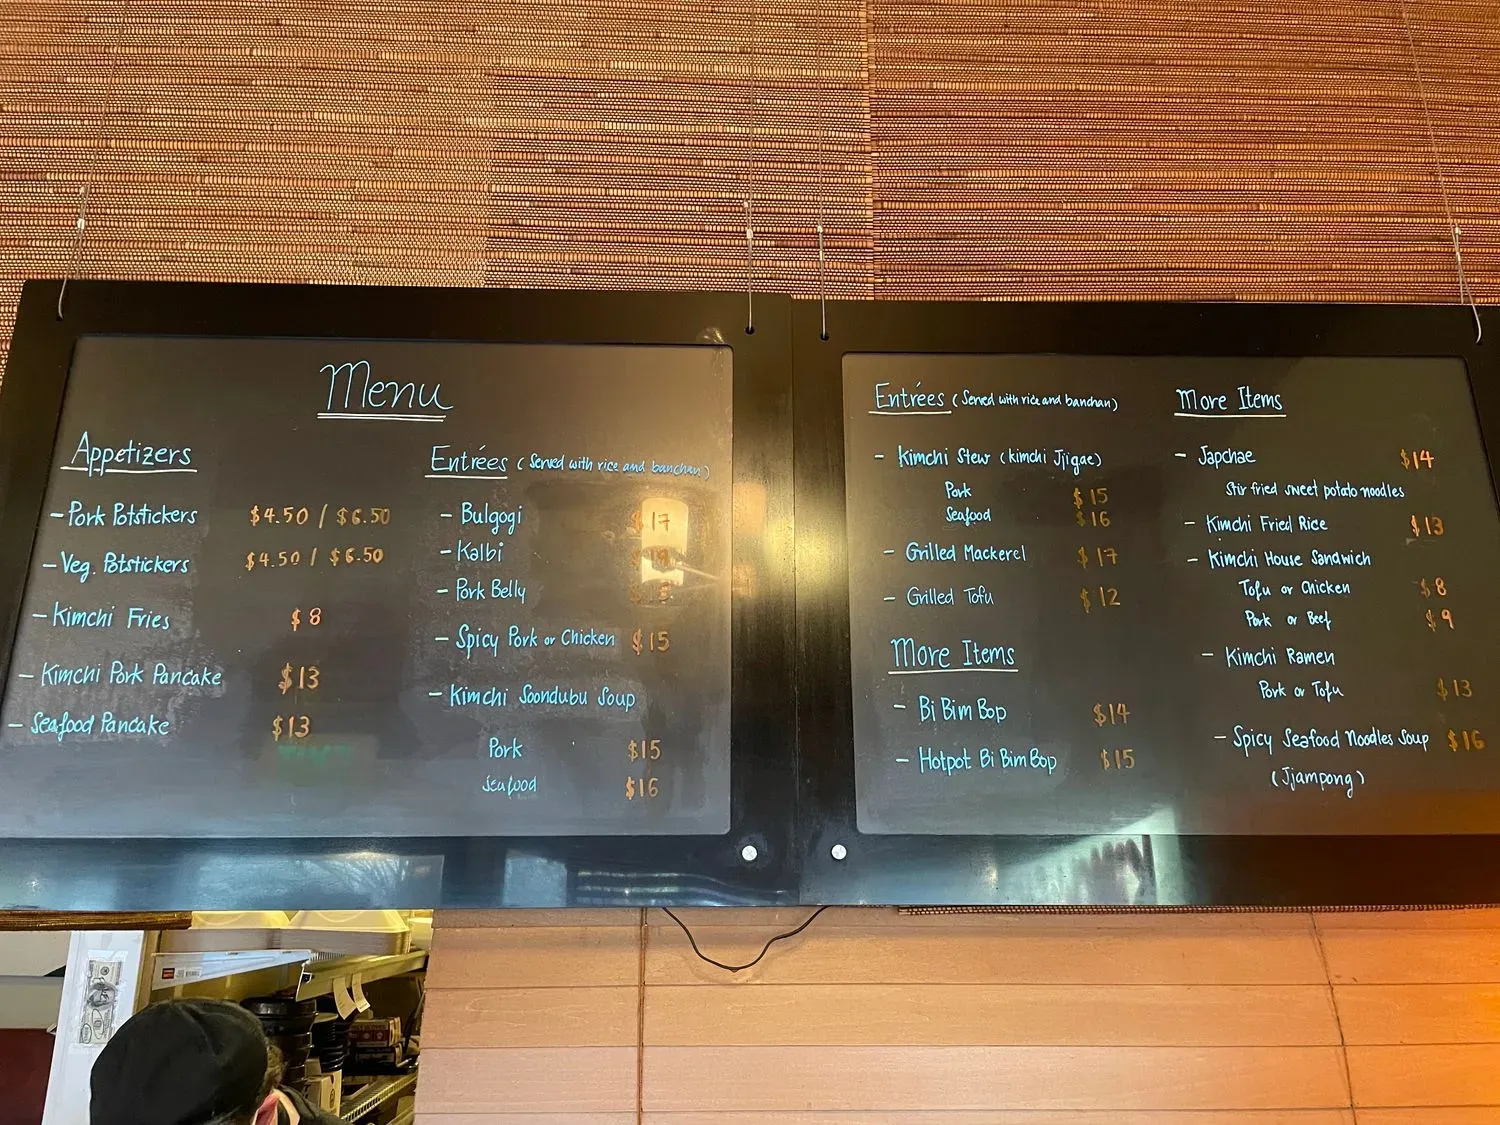 Menu
Appetizers
- Pork Potstickers $4.50 / $6.50
- Veg. Potstickers $4.50 / $6.50
- Kimchi Fries $8
- Kimchi Pork Pancake $13
- Seafood Pancake $13
Entrées (Served with rice and banchan)
- Bulgogi $17
- Kalbi
- Pork Belly
- Spicy Pork or Chicken $15
- Kimchi Soondubu Soup
Pork $15
Seafood $16
Entrées (Served with rice and banchan)
- Kimchi Stew (kimchi Jjigae)
Pork $15
Seafood $16
- Grilled Mackerel $17
- Grilled Tofu $12
More Items
- Bi Bim Bop $14
- Hotpot Bi Bim Bop $15
More Items
- Japchae $14
Stir fried sweet potato noodles
- Kimchi Fried Rice $13
- Kimchi House Sandwich
Tofu or Chicken $8
Pork or Beef $9
- Kimchi Ramen
Pork or Tofu $13
- Spicy Seafood Noodles Soup $16
(Jjampong)